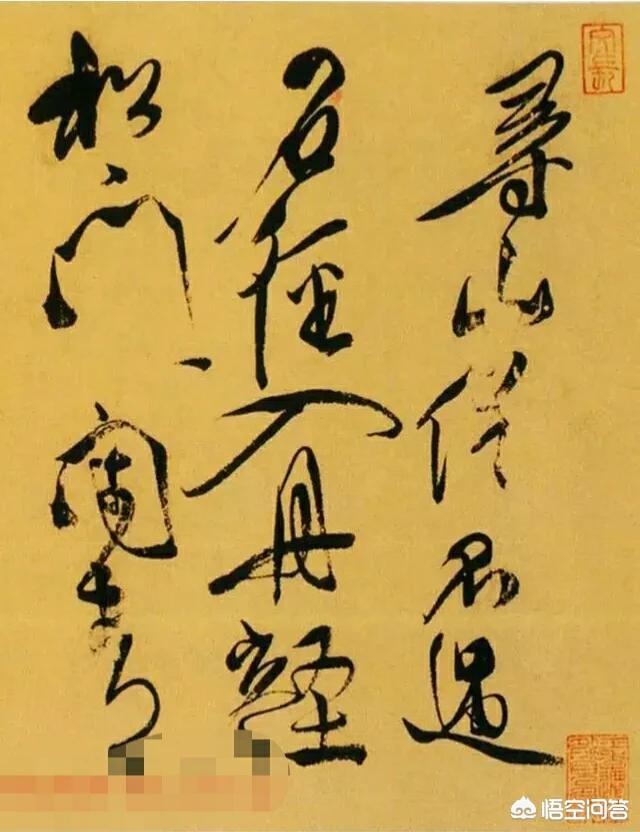 尋山僧不遇
石徑入丹壑
松門閉青
悟空问答